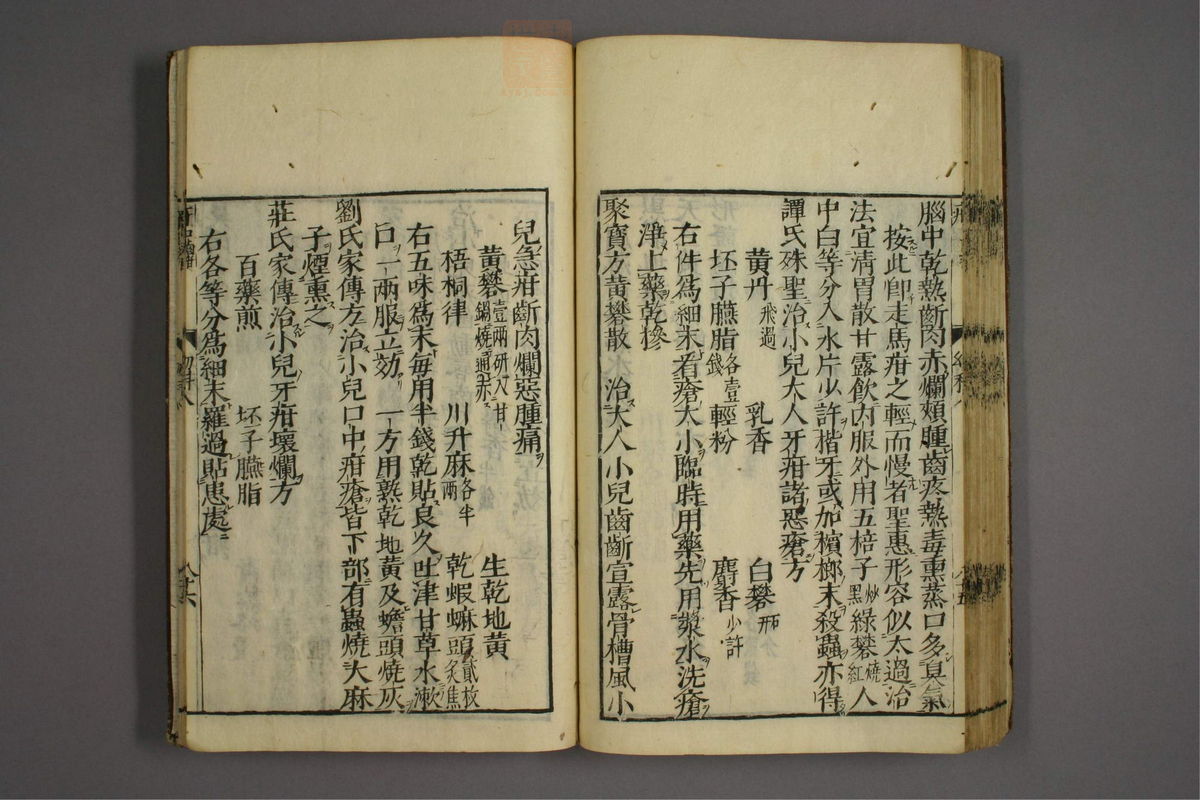 腦中乾熱齗肉赤爛頰腫齒疼熱毒熏蒸口多臭氣
按此卽走馬疳之輕而慢者聖惠形容似太過治
法宜淸胃散甘露飮內服外用五棓子炒黑綠礬燒紅人
中白等分入氷片少許揩牙或加檳榔末殺蟲亦得
譚氏殊聖治小兒大人牙疳諸惡瘡方
黃丹飛過 乳香 白礬
坯子臙脂各壹錢 輕粉 麝香少許
右件爲細末看瘡大小臨時用藥先用漿水洗瘡
淨上藥乾摻
聚寶方黃礬散 治大人小兒齒齗宣露骨槽風小
兒急疳齗肉爛惡腫痛
黃礬壹兩研入甘鍋燒通赤 生乾地黃
梧桐律 川升麻各半兩 乾蝦蟆頭貳枚炙焦
右五味爲末每用半錢乾貼良久吐津甘草水漱
口一兩服立効 一方用熟乾地黃及蟾頭燒灰
劉氏家傳方治小兒口中疳瘡皆下部有蟲燒大麻
子煙熏之
莊氏家傳治小兒牙疳壞爛方
百藥煎 坯子臙脂
右各等分爲細末羅過貼患處